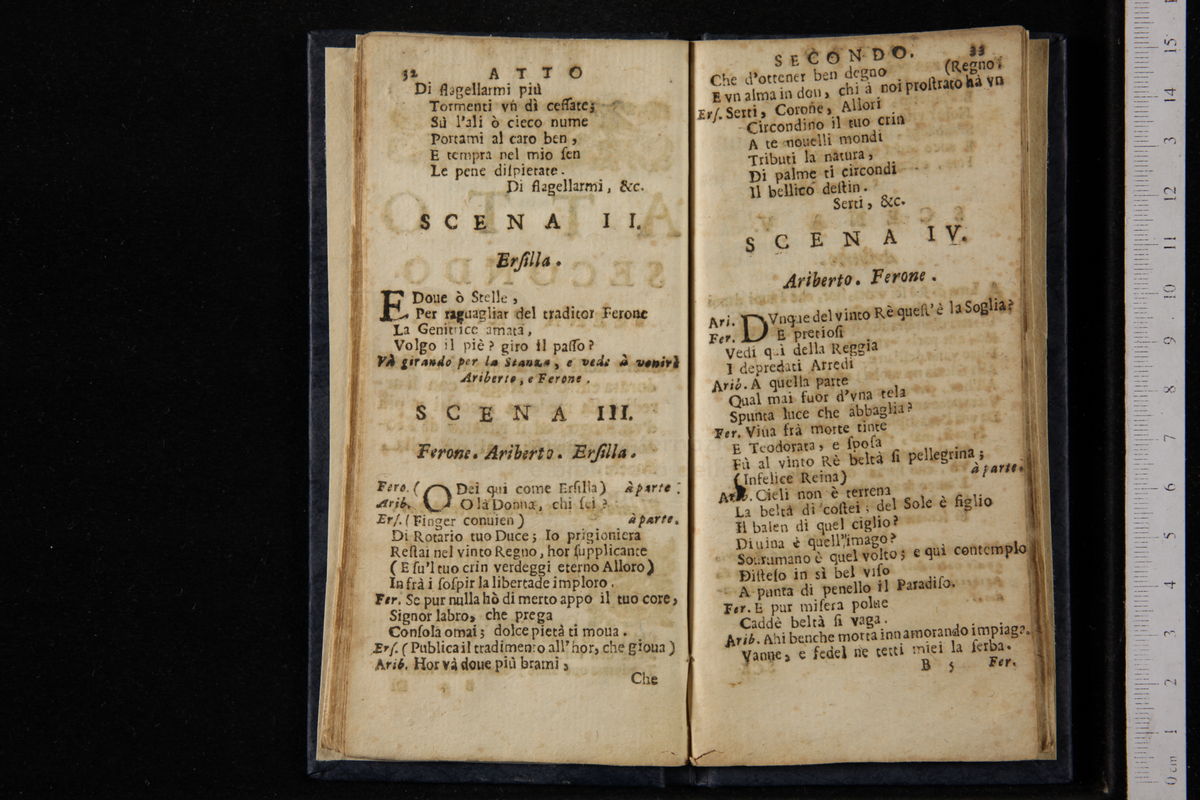 32 ATTO
Di flagellarmi più
Tormenti vn dì ceſſate;
Sù l'ali ò cieco nume
Portami al caro ben,
E tempra nel mio ſen
Le pene diſpietate.
Di flagellarmi, &c.
SCENA II.
Erſilla.
E Doue ò Stelle,
Per raguagliar del traditor Ferone
La Genitrice amata,
Volgo il piè? giro il paſſo?
Và girando per la Stanza, e vede à venire
Ariberto, e Ferone.
SCENA III.
Ferone. Ariberto. Erſilla.
Fero. (O Dei qui come Erſilla) à parte.
Arib. O là Donna, chi ſei?
Erſ. (Finger conuien) à parte.
Di Rotario tuo Duce; Io prigioniera
Reſtai nel vinto Regno, hor ſupplicante
(E ſu'l tuo crin verdeggi eterno Alloro)
Infrà i ſoſpir la libertade imploro.
Fer. Se pur nulla hò di merto appo il tuo core,
Signor labro, che prega
Conſola omai; dolce pietà ti moua.
Erſ. (Publica il tradimento all'hor, che gioua)
Arib. Hor và doue più brami,
Che
SECONDO. 33
Che d'ottener ben degno (Regno.
E vn alma in don, chi à noi proſtrato hà vn
Erſ. Serti, Corone, Allori
Circondino il tuo crin
A te nouelli mondi
Tributi la natura,
Di palme ti circondi
Il bellico deſtin.
Serti, &c.
SCENA IV.
Ariberto. Ferone.
Ari. DVnque del vinto Rè queſt'è la Soglia?
Fer. E pretioſi
Vedi quì della Reggia
I depredati Arredi
Arib. A quella parte
Qual mai fuor d'vna tela
Spunta luce che abbaglia?
Fer. Viua frà morte tinte
E Teodorata, e ſpoſa
Fù al vinto Rè beltà ſi pellegrina;
(Infelice Reina) à parte.
Arib. Cieli non è terrena
La beltà di coſtei; del Sole è figlio
Il balen di quel ciglio?
Diuina è quell'imago?
Sourumano è quel volto; e qui contemplo
Diſteſo in sì bel viſo
A punta di penello il Paradiſo.
Fer. E pur miſera polue
Caddè beltà ſi vaga.
Arib. Ahi benche morta innamorando impiaga.
Vanne, e fedel ne tetti miei la ſerba.
B 5 Fer.